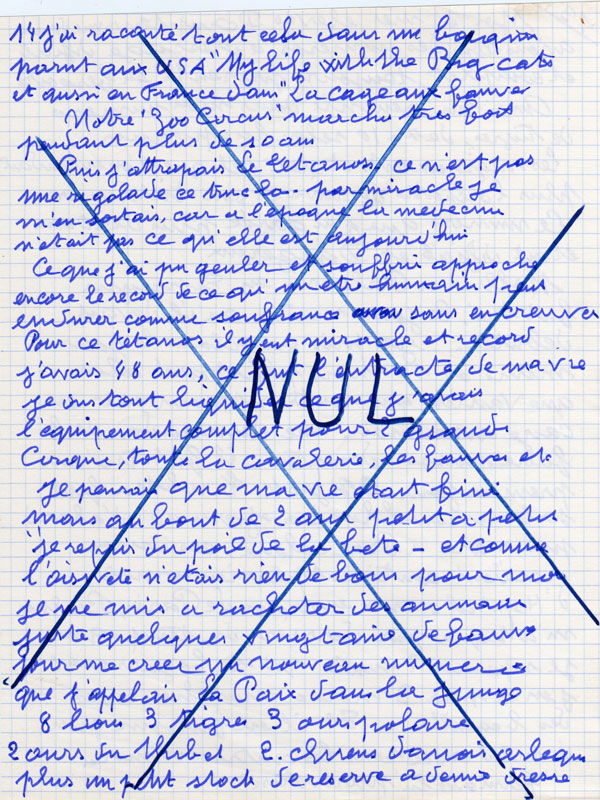 14 j'ai raconté tout cela dans un bouquin
parut aux USA "My Life with the Big cats
et aussi en France dans "La cage aux fauves
Notre "Zoo Circus" marcha très fort
pendant plus de 10 ans
Puis j'attrapais le tetanos, ce n'est pas
une rigolade ce truc la. par miracle je
m'en sortais, car a l'epoque la medecine
n'etait pas ce qu'elle est aujourd'hui
Ce que j'ai pu gueuler et souffrir approche
encore le record de ce qu'un etre humain peut
endurer comme souffrance sans en crever
Pour ce tétanos il y eut miracle et record
j'avais 48 ans, ce fut l'entracte de ma vie
je dus tout liquider ce que j'avais
NUL
l'equipement complet pour 2 grands
Cirque, toute la cavalerie, les fauves etc
je pensais que ma vie etait finie
mais au bout de 2 ans petit a petit
je repris du poil de la bete - et comme
l'oisivete n'etais rien de bon pour moi
je me mis a racheter des animaux
juste quelques vingtaine de fauves
pour me creer un nouveau numero
que j'appelais la Paix dans la jungle
8 lions 3 tigres 3 ours polaire
2 ours du Thibet 2 chiens danois arlequin
plus un petit stock de reserve a demi dressé